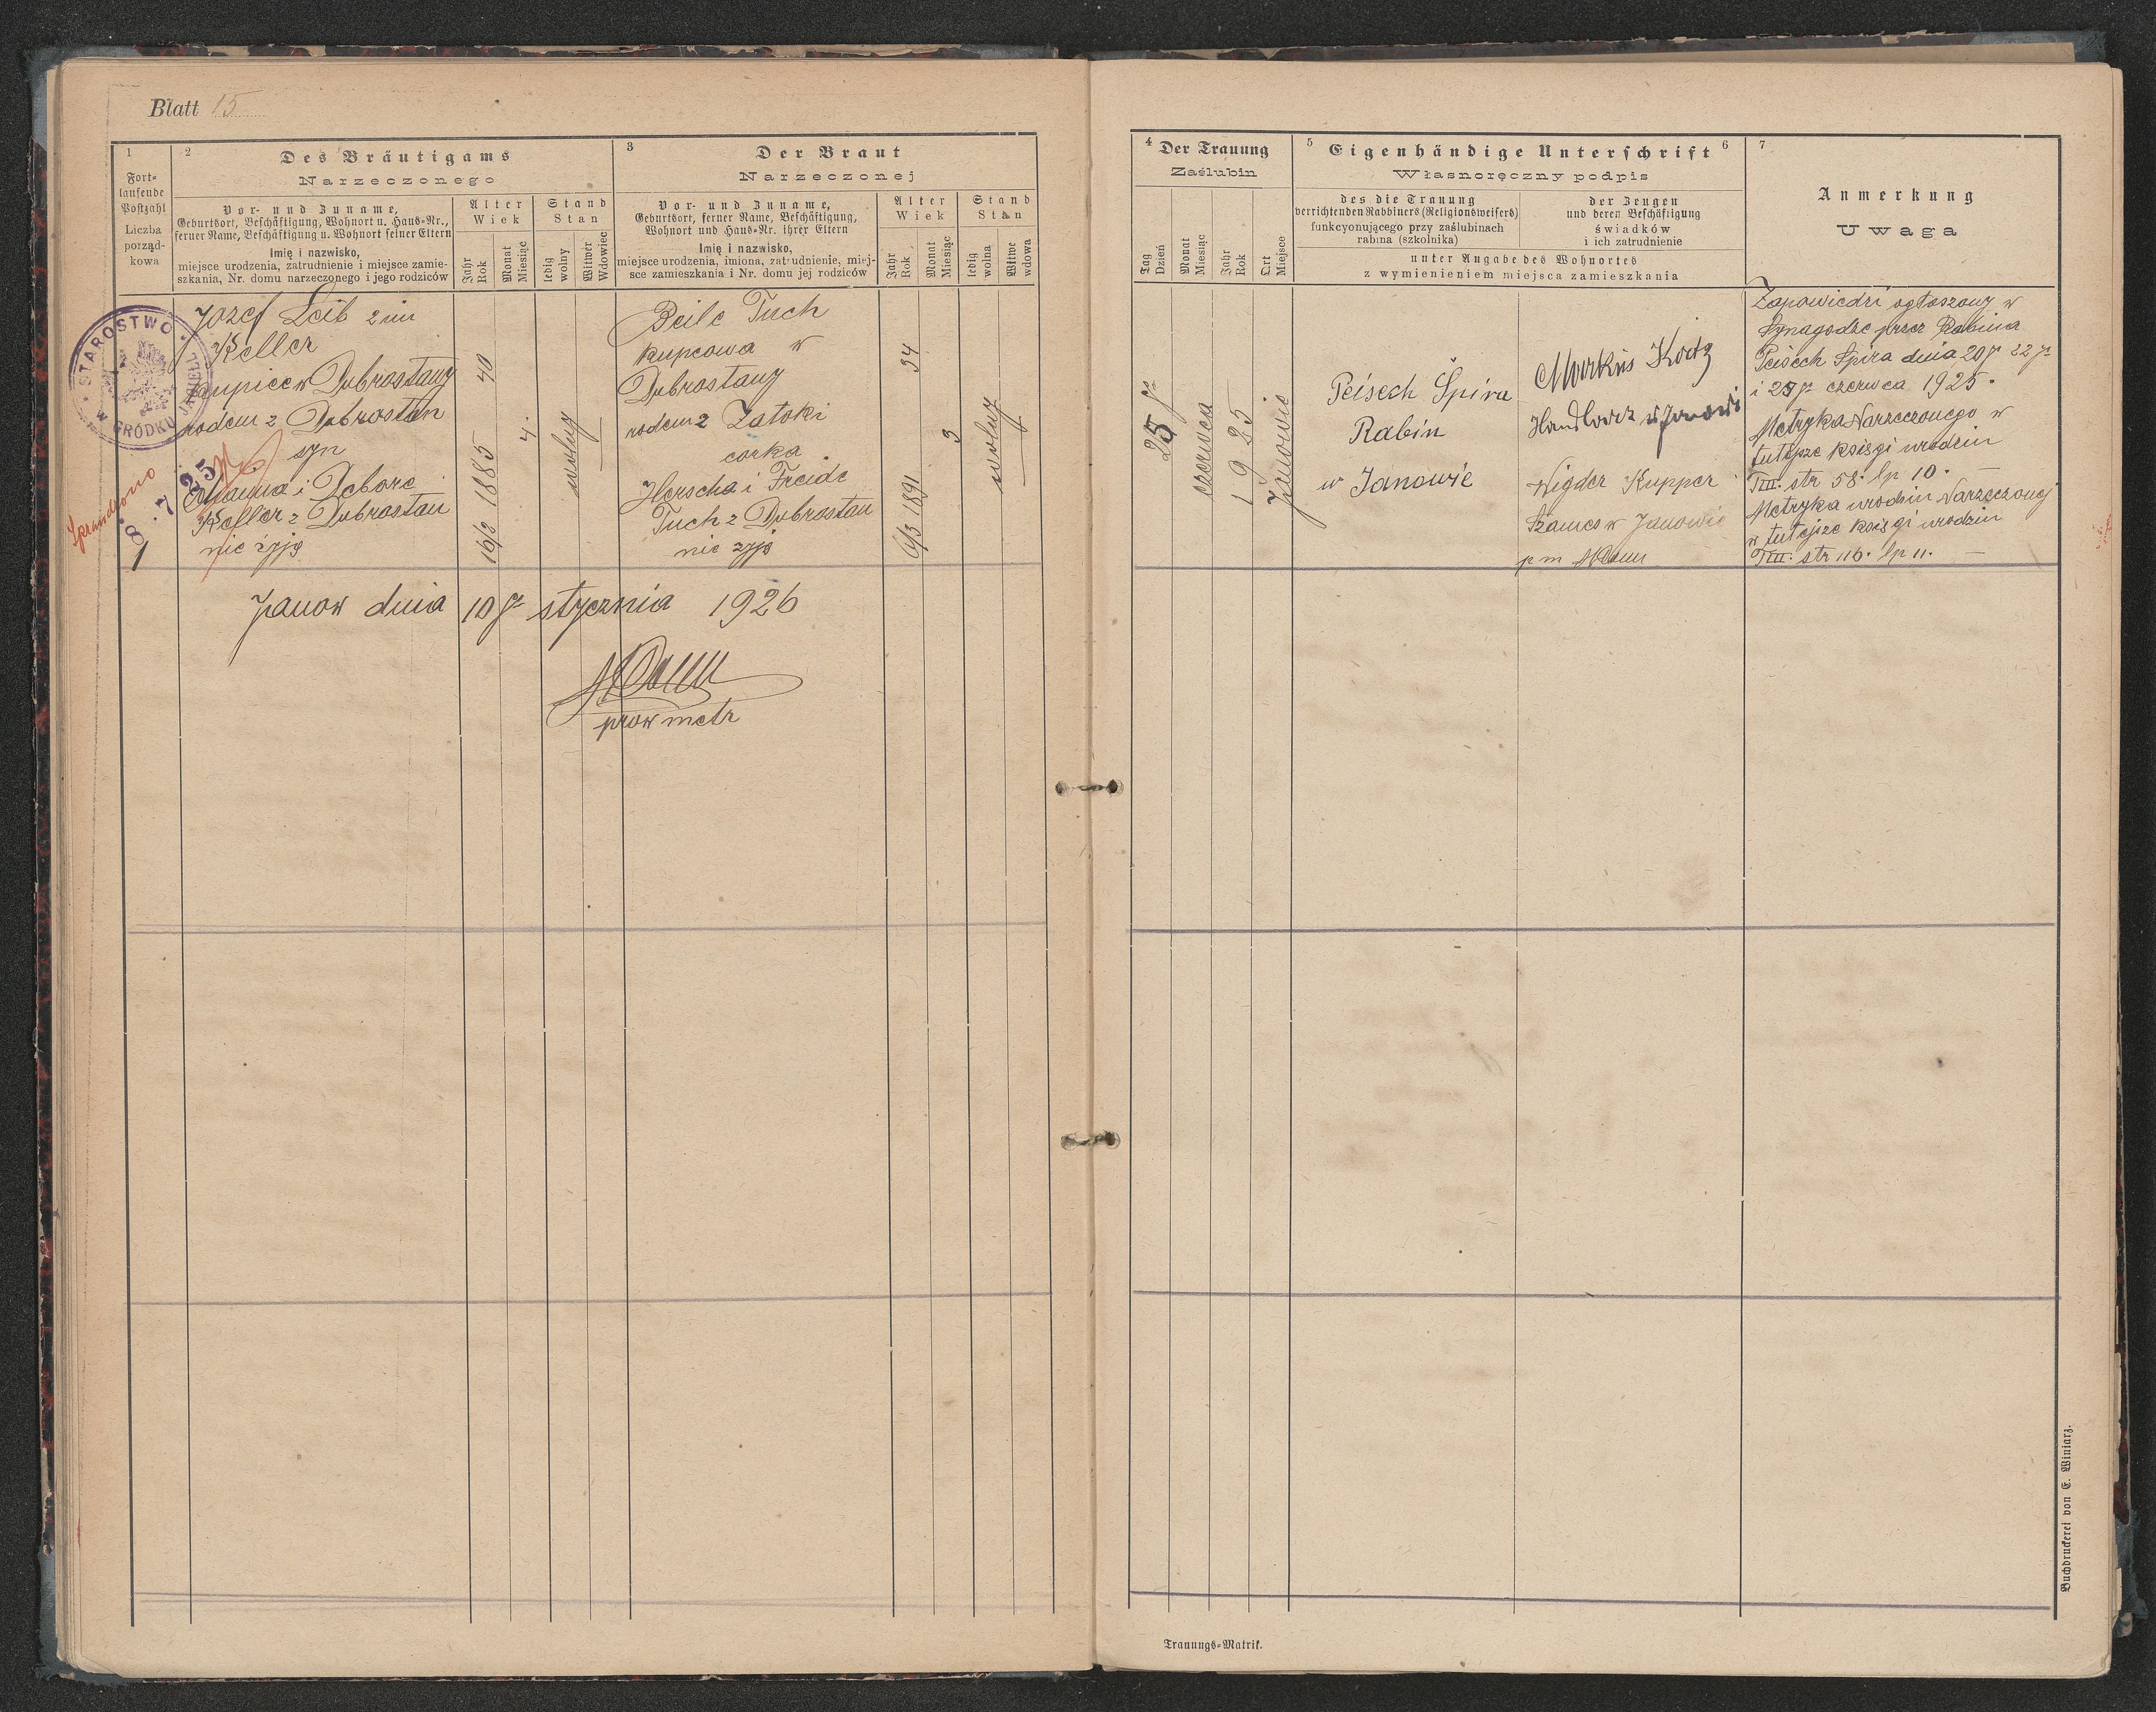 Blatt 15
1
Fort-
laufende
Postzahl
Liczba
porząd-
kowa
2
Des Bräutigams
Narzeczonego
Vor- und Zuname,
Geburtsort, Beschäftigung, Wohnort u. Haus-Nr.,
ferner Name, Beschäftigung u. Wohnort seiner Eltern
Imię i nazwisko,
miejsce urodzenia, zatrudnienie i miejsce zamie-
szkania, Nr. domu narzeczonego i jego rodziców
Alter
Wiek
Jahr
Rok
Monat
Miesiąc
Stand
Stan
ledig
wolny
Witwer
Wdowiec
3
Der Braut
Narzeczonej
Vor- und Zuname,
Geburtsort, ferner Name, Beschäftigung,
Wohnort und Haus-Nr. ihrer Eltern
Imię i nazwisko,
miejsce urodzenia, imiona, zatrudnienie, miej-
sce zamieszkania i Nr. domu jej rodziców
Alter
Wiek
Jahr
Rok
Monat
Miesiąc
Stand
Stan
ledig
wolna
Witwe
wdowa
STAROSTWO
W GRÓDKU JAGIELL.
8. 7. 25
Sprawdzono
1
Jozef Leib 2 im
Keller
kupiec w Dobrostany
rodem z Dobrostan
syn
i Debore
Keller z Dobrostan
nie żyją
40
16/3 1885
4
wolny
Beile Tuch
kupcowa w
Dobrostany
rodem z Zatoki
corka
Herscha i Freide
Tuch z Dobrostan
nie żyją
34
6/3 1891
3
wolny
Janow dnia 10go stycznia 1926
prow metr
4
Der Trauung
Zaślubin
Tag
Dzień
Monat
Miesiąc
Jahr
Rok
Ort
Miejsce
5
Eigenhändige Unterschrift
6
Własnoręczny podpis
des die Trauung
verrichtenden Rabbiners (Religionsweisers)
funkcyonującego przy zaślubinach
rabina (szkolnika)
der Zeugen
und deren Beschäftigung
świadków
i ich zatrudnienie
unter Angabe des Wohnortes
z wymienieniem miejsca zamieszkania
7
Anmerkung
Uwaga
25go
czerwca
1925
Janowie
Peisech Spira
Rabin
w Janowie
Markus
Wigder Kupper
Szames w Janowie
Zapowiedzi ogłoszony w
Synagodze przez Rabina
Peisech Spira dnia 20go 22go
i 25go czerwca 1925.
Metryka Narzeczonego w
tutejsze księgi urodzin
TIII. str 58. lp 10. —
Metryka urodzin Narzeczonej
w tutejsze księgi urodzin
TIII. str 116. lp 11. —
Trauungs-Matrik.
Buchdruckerei von E. Winiarz.